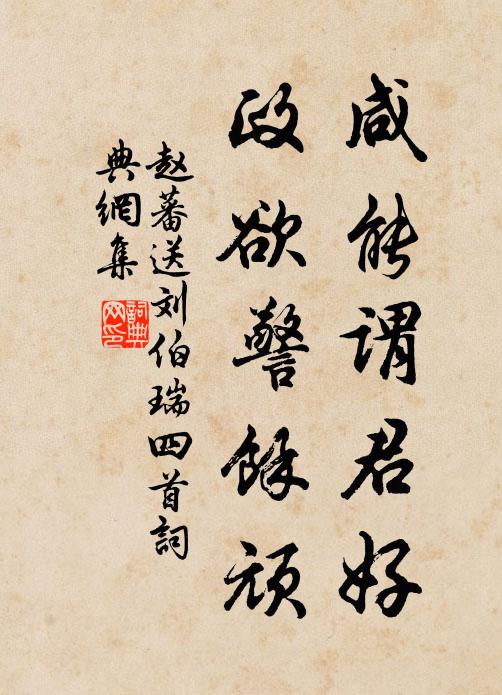 咸能谓君好
政欲警馀顽
赵蕃送刘伯瑞四首词
典網集
詞典网印